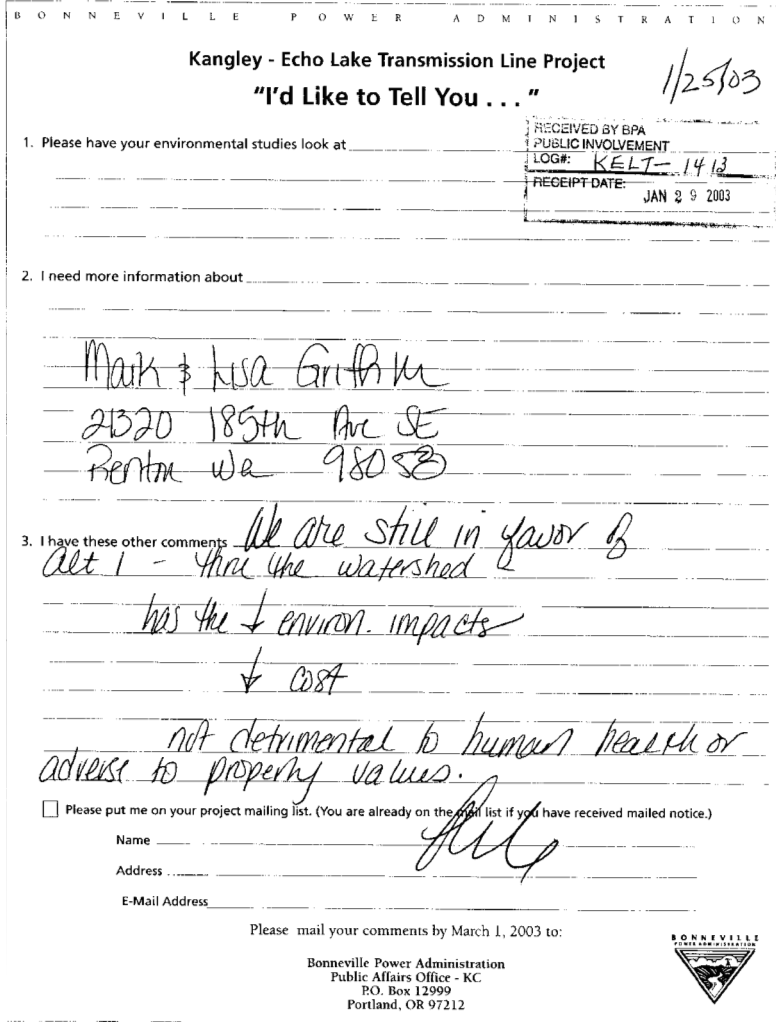 BONNEVILLE POWER ADMINISTRATION
Kangley - Echo Lake Transmission Line Project
1/25/03
"I'd Like to Tell You . . . "
RECEIVED BY BPA
PUBLIC INVOLVEMENT
LOG#: KELT- 1413
RECEIPT DATE:
JAN 29 2003
1. Please have your environmental studies look at
2. I need more information about
Mark & Lisa Griffin
21320 185th Ave SE
Renton Wa 98058
3. I have these other comments We are still in favor of
alt 1 - thru the watershed
has the ↓ environ. impacts
↓ cost
not detrimental to human health or
adverse to property values.
Please put me on your project mailing list. (You are already on the mail list if you have received mailed notice.)
Name
Address
E-Mail Address
Please mail your comments by March 1, 2003 to:
Bonneville Power Administration
Public Affairs Office - KC
P.O. Box 12999
Portland, OR 97212
BONNEVILLE
POWER ADMINISTRATION